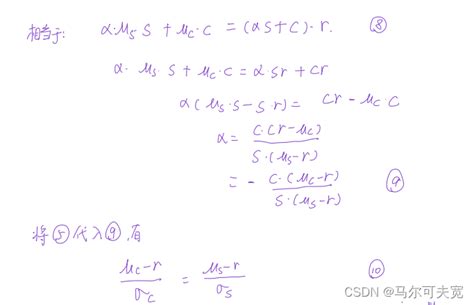 相当于: α·μ_S S + μ_C·C = (αS+C)·r. ⑧
α·μ_S S + μ_C·C = α·Sr + Cr
α(μ_S·S - S·r) = Cr - μ_C·C
α = C·(r-μ_C) / S·(μ_S-r)
= - C·(μ_C-r) / S·(μ_S-r) ⑨
将⑤代入⑨,有
μ_C-r / σ_C = μ_S-r / σ_S ⑩
CSDN @马尔可夫宽